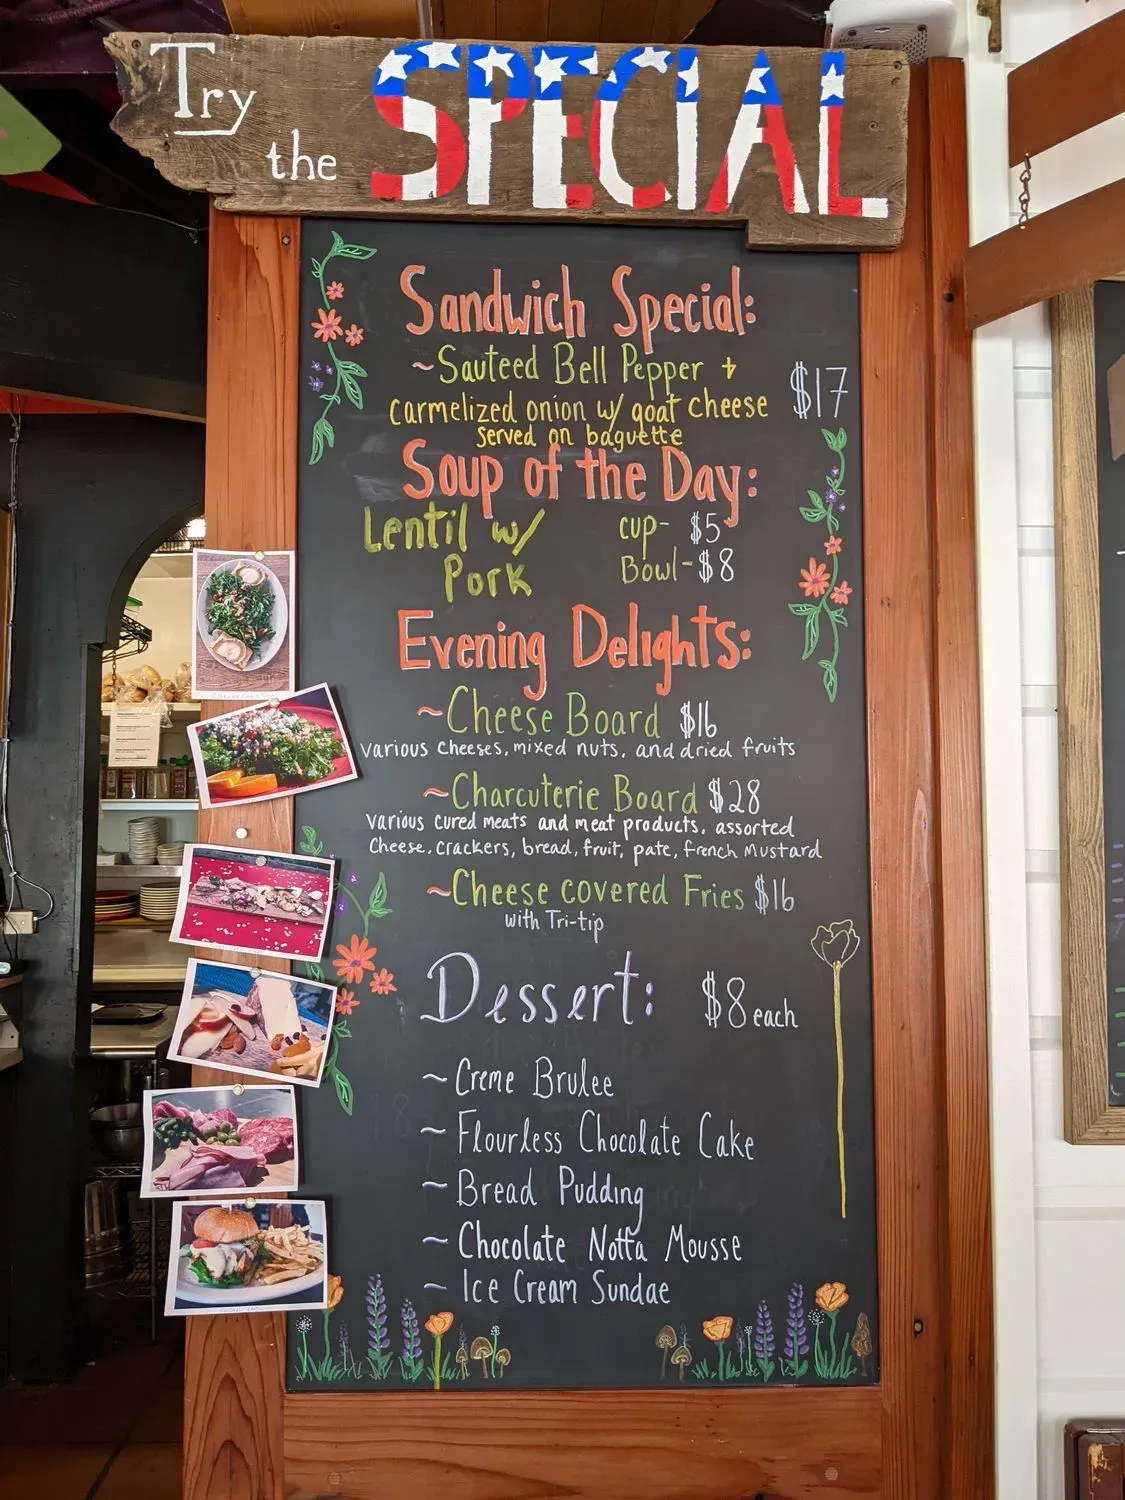 Try
the SPECIAL
Sandwich Special:
~Sauteed Bell Pepper +
carmelized onion w/ goat cheese $17
served on baguette
Soup of the Day:
Lentil w/ cup- $5
Pork Bowl-$8
Evening Delights:
~Cheese Board $16
various cheeses, mixed nuts, and dried fruits
~Charcuterie Board $28
various cured meats and meat products, assorted
cheese, crackers, bread, fruit, pate, french mustard
~Cheese covered Fries $16
with Tri-tip
Dessert: $8 each
~ Creme Brulee
~ Flourless Chocolate Cake
~ Bread Pudding
~ Chocolate Notta Mousse
~ Ice Cream Sundae